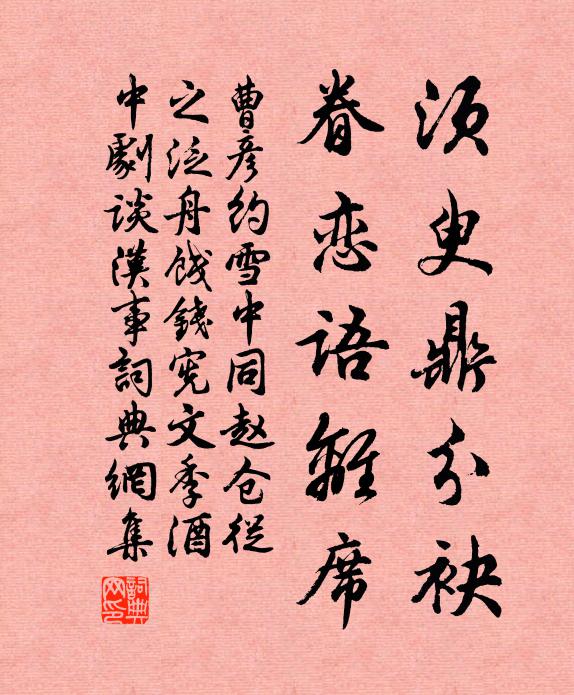 须臾鼎分袂
眷恋语离席
曹彦约雪中同赵仓从
之泛舟饯钱宪文季酒
中剧谈汉事词典網集
詞典網印